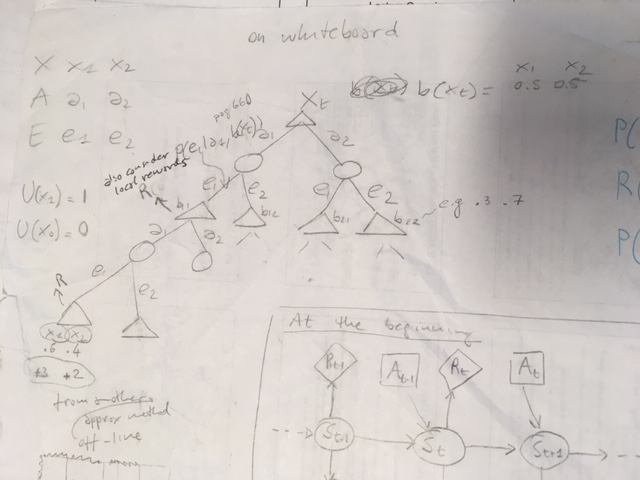 on whiteboard
X x1 x2
A a1 a2
E e1 e2
U(x1) = 1
U(x0) = 0
b(xt) = x1 0.5 x2 0.5
Xt
a1 a2
p(e1|a1, b(xt))
also consider local rewards
R
e1 e2 e1 e2
b1 b12 b21 b22
e.g. .3 .7
a1 a2
R
e1
e2
.6 .4
+3 +2
from another
approx method
off-line
At the beginning
Rt-1 At-1 Rt At
St-1 St St+1
P(
R(
P(